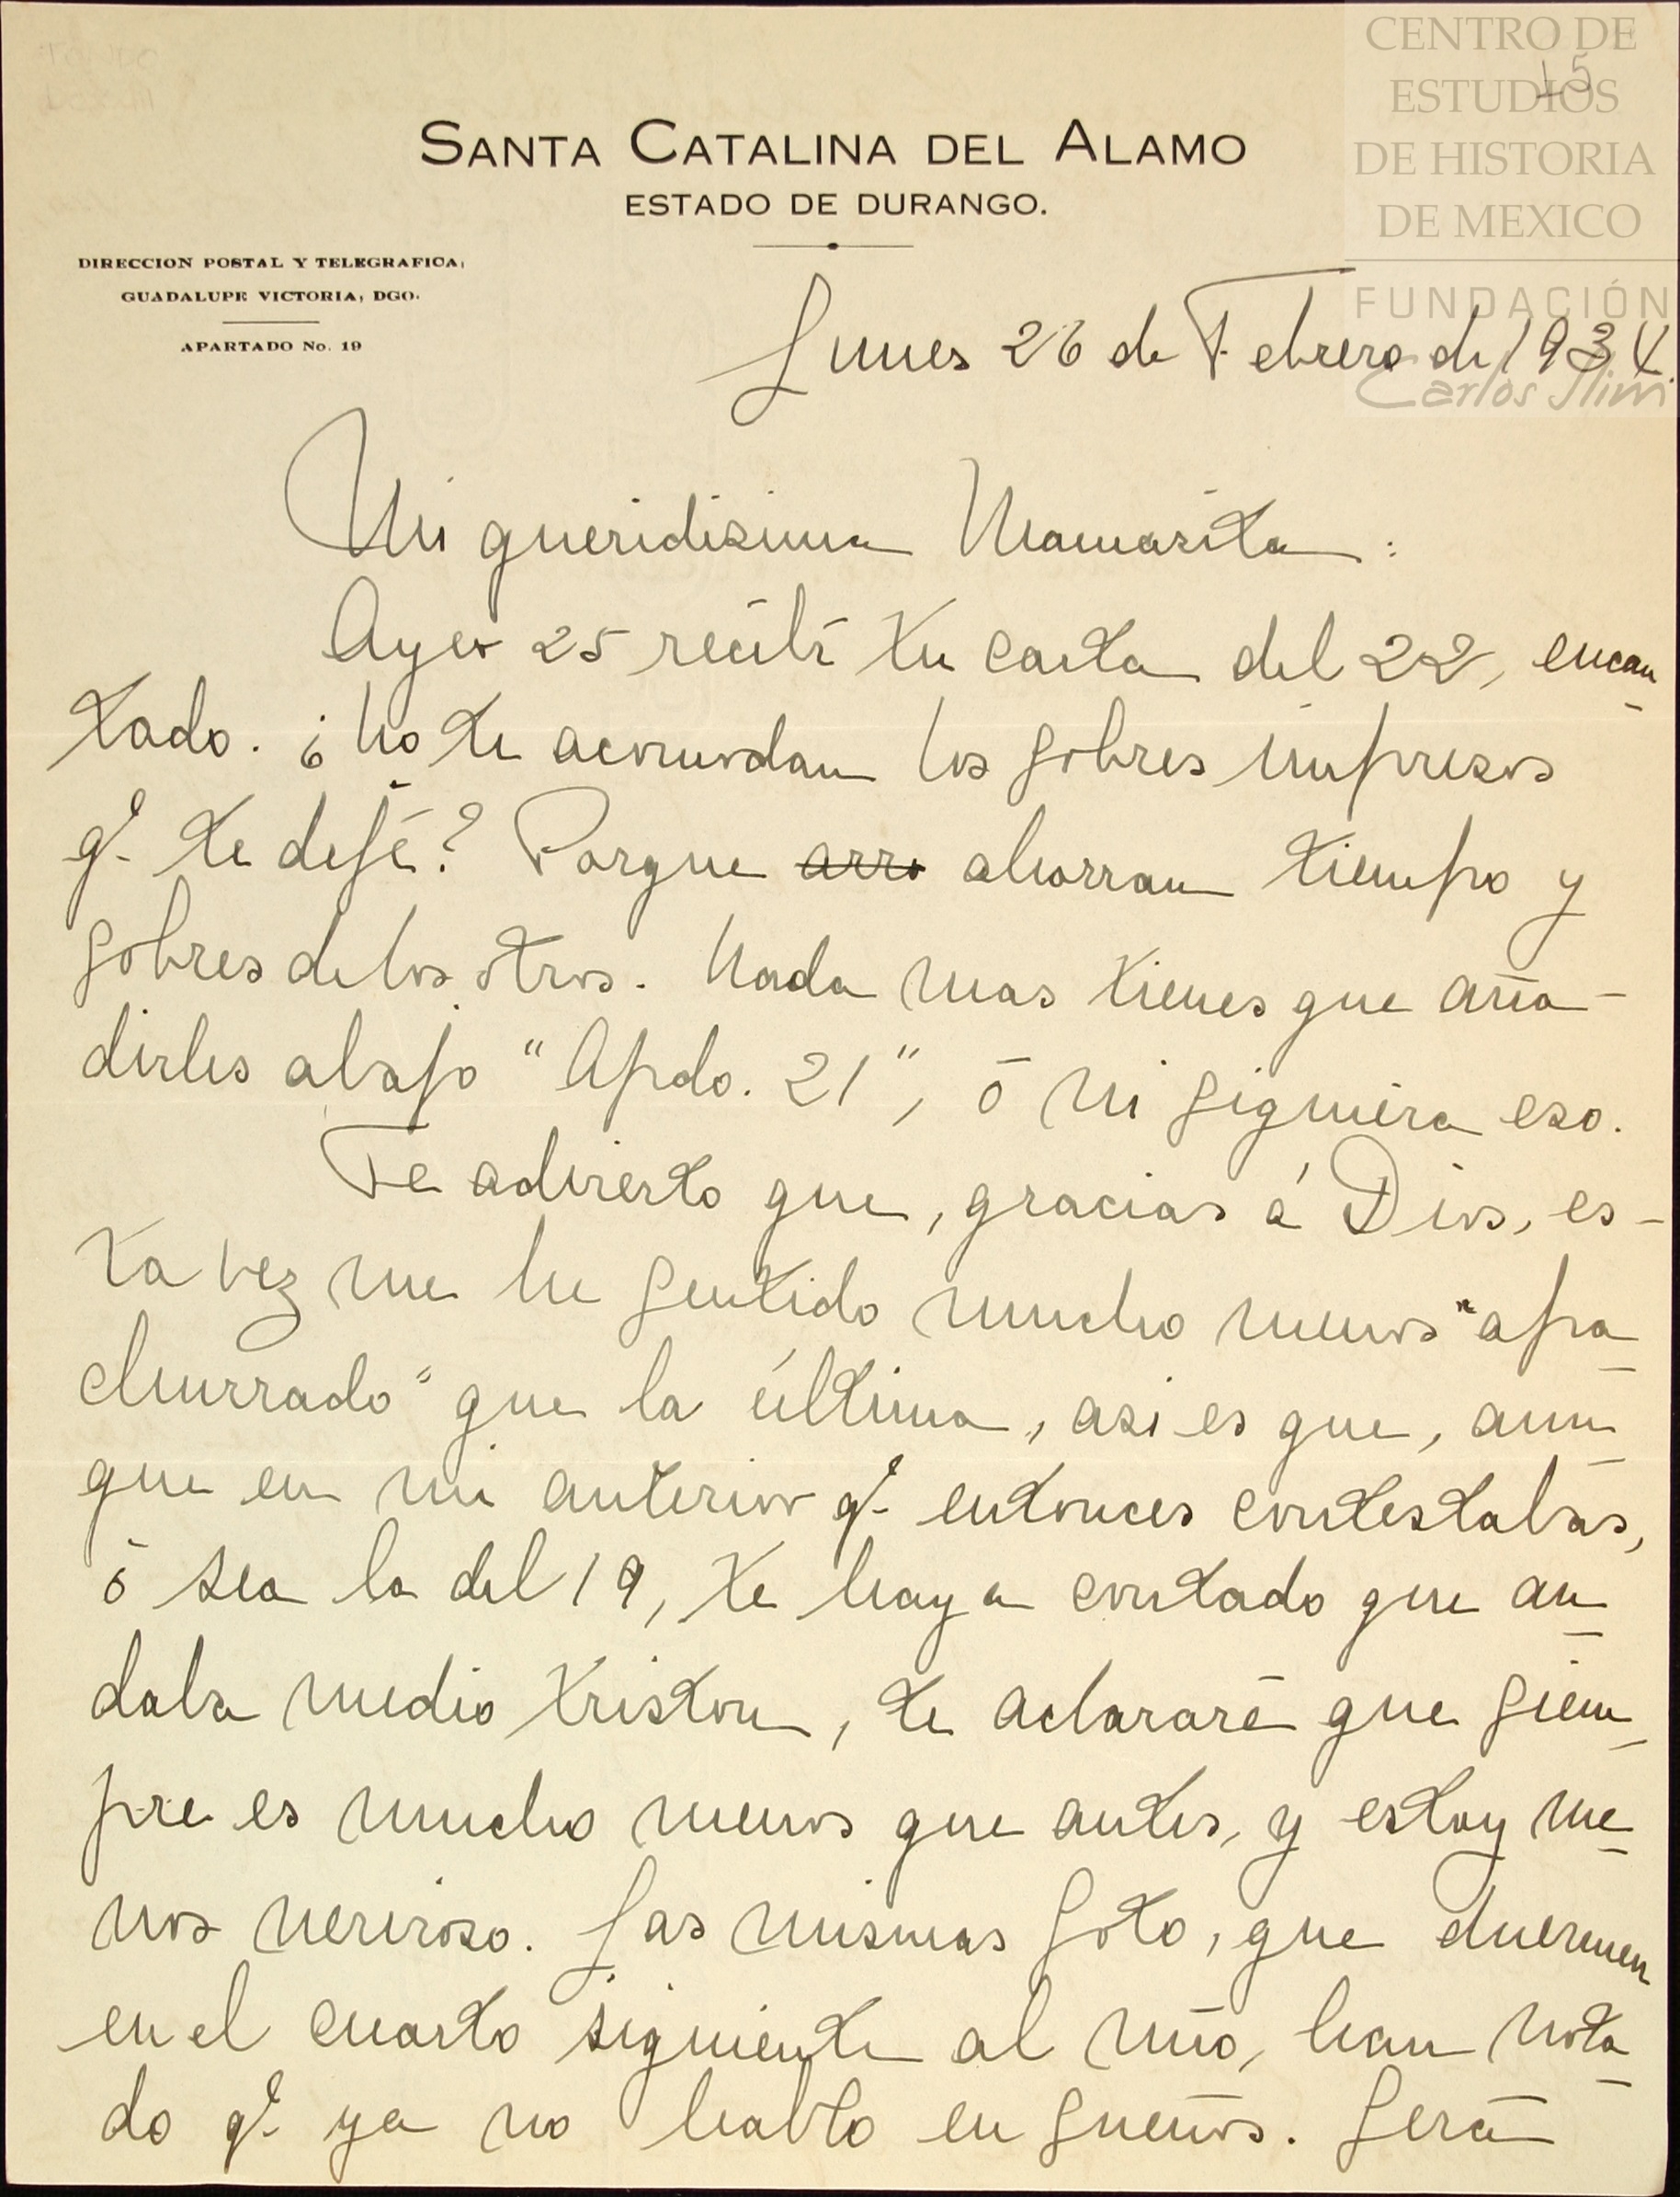 CENTRO DE
ESTUDIOS
DE HISTORIA
DE MEXICO
FUNDACIÓN
Carlos Slim
15
SANTA CATALINA DEL ALAMO
ESTADO DE DURANGO.
DIRECCION POSTAL Y TELEGRAFICA,
GUADALUPE VICTORIA, DGO.
APARTADO No. 19
Lunes 26 de Febrero de 1934.
Mi queridisima Mamasita:
Ayer 25 recibí tu carta del 22, encan-
tado. ¿No te acomodan los sobres impresos
q.e te dejé? Porque arro ahorran tiempo y
sobres de los otros. Nada mas tienes que aña-
dirles abajo "Apdo. 21", ó ni siquiera eso.
Te advierto que, gracias á Dios, es-
ta vez me he sentido mucho menos "apa-
churrado" que la última, asi es que, aun-
que en mi anterior q.e entonces contestabas,
ó sea la del 19, te haya contado que an-
daba medio triston, te aclararé que siem-
pre es mucho menos que antes, y estoy me-
nos nervioso. Las mismas Soto, que duermen
en el cuarto siguiente al mío, han nota-
do q.e ya no hablo en sueños. Será